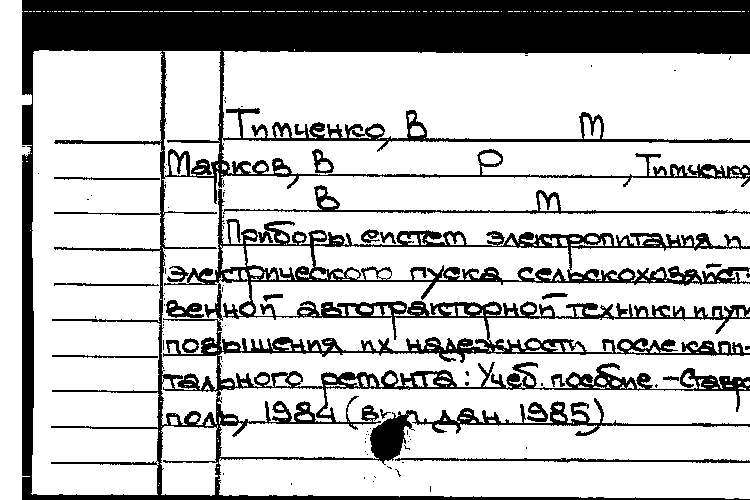 Тимченко, В М
Марков, В Р , Тимченко,
В М
Приборы систем электропитания и
электрического пуска сельскохозяйст-
венной автотракторной техники и пути
повышения их надежности после капи-
тального ремонта: Учеб. пособие. - Ставро
поль, 1984 (вып. дан. 1985)